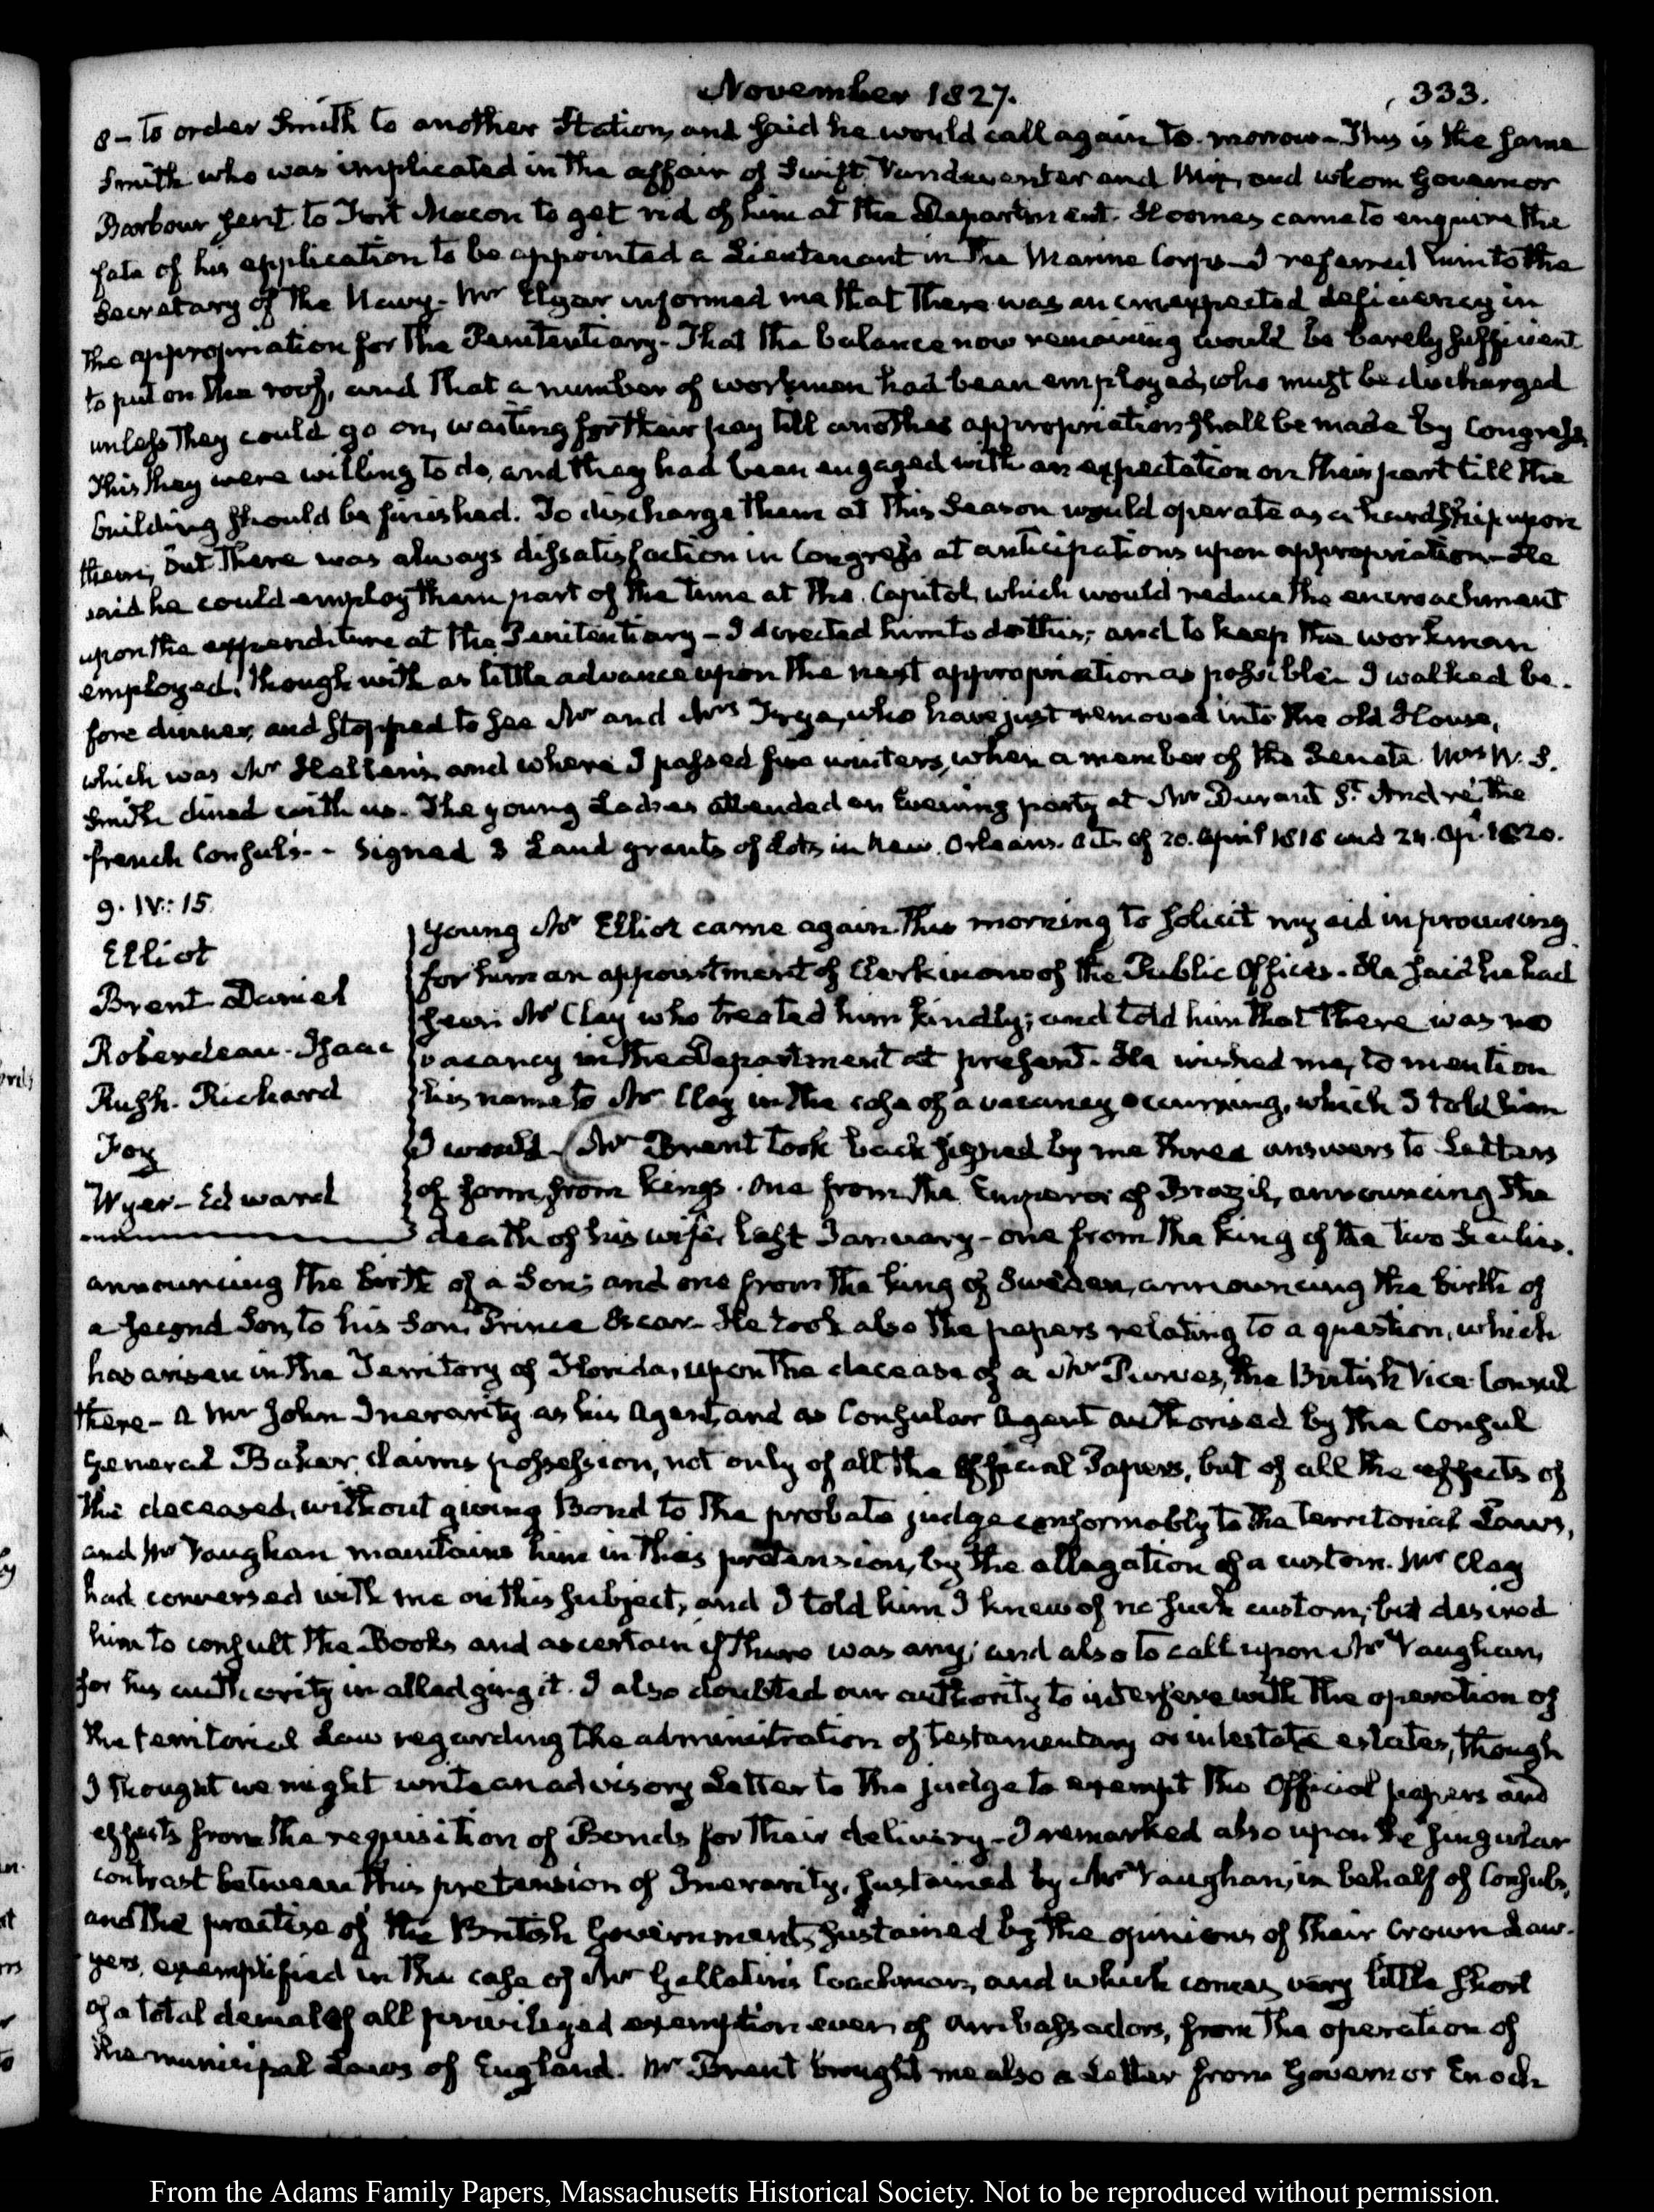 November 1827.
333.
8 - to order Smith to another Station, and said he would call again to-morrow - This is the same
Smith who was implicated in the affair of Swift, Vandeventer and Mix, and whom Governor
Barbour sent to Fort Macon to get rid of him at the Department. Hoomes came to enquire the
fate of his application to be appointed a Lieutenant in the Marine Corps - I referred him to the
Secretary of the Navy - Mr Elgar informed me that there was an unexpected deficiency in
the appropriation for the Penitentiary - That the balance now remaining would be barely sufficient
to put on the roof, and that a number of workmen had been employed, who must be discharged
unless they could go on, waiting for their pay till another appropriation shall be made by Congress.
This they were willing to do, and they had been engaged with an expectation on their part till the
building should be finished. To discharge them at this Season would operate as a hardship upon
them; but there was always dissatisfaction in Congress at anticipations upon appropriation - He
said he could employ them part of the time at the Capitol, which would reduce the encroachment
upon the expenditure at the Penitentiary - I directed him to do this; and to keep the workmen
employed, though with as little advance upon the next appropriation as possible. I walked be-
fore dinner, and stopped to see Mr and Mrs Frye, who have just removed into the old House,
which was Mr Hellen's, and where I passed five winters, when a member of the Senate. Mrs W. S.
Smith dined with us. The young Ladies attended an Evening party at Mr Durant St. André, the
french Consul's. - Signed 3 Land grants of lots in New Orleans. Acts of 20. April 1818 and 24. Ap. 1820.
9. IV: 15.
Elliot
Brent Daniel
Roberdeau - Isaac
Rush - Richard
Foy
Wyer - Edward
Young Mr Elliot came again this morning to solicit my aid in procuring
for him an appointment of Clerk in one of the Public Offices. He said he had
seen Mr Clay who treated him kindly; and told him that there was no
vacancy in the Department at present. He wished me, to mention
his name to Mr Clay in the case of a vacancy occurring, which I told him
I would - Mr Brent took back signed by me three answers to Letters
of form, from Kings. One from the Emperor of Brazil, announcing the
death of his wife, last January - one from the King of the two Sicilies.
announcing the birth of a Son; and one from the King of Sweden, announcing the birth of
a second Son, to his Son, Prince Oscar - He took also the papers relating to a question, which
has arisen in the Territory of Florida, upon the decease of a Mr Purves, the British Vice Consul
there - A Mr John Inerarity as his Agent, and as Consular Agent authorised by the Consul
General Baker, claims possession, not only of all the Official Papers, but of all the effects of
the deceased, without giving Bond to the probate judge conformably to the Territorial Laws,
and Mr Vaughan maintains him in this pretension, by the allegation of a custom. Mr Clay
had conversed with me on this subject, and I told him I knew of no such custom; but desired
him to consult the Books and ascertain if there was any; and also to call upon Mr Vaughan,
for his authority in alledging it. I also doubted our authority to interfere with the operation of
the territorial Law regarding the administration of testamentary or intestate estates, though
I thought we might write an advisory Letter to the judge to exempt the Official papers and
effects from the requisition of Bonds for their delivery - I remarked also upon the singular
contrast between this pretension of Inerarity, sustained by Mr Vaughan, in behalf of Consuls,
and the practise of the British Government, sustained by the opinions of their Crown Law-
yers, exemplified in the case of Mr Gallatin's Coachman, and which comes very little short
of a total denial of all privileged exemption even of Ambassadors, from the operation of
the municipal Laws of England. Mr Brent brought me also a Letter from Governor Enoch
From the Adams Family Papers, Massachusetts Historical Society. Not to be reproduced without permission.